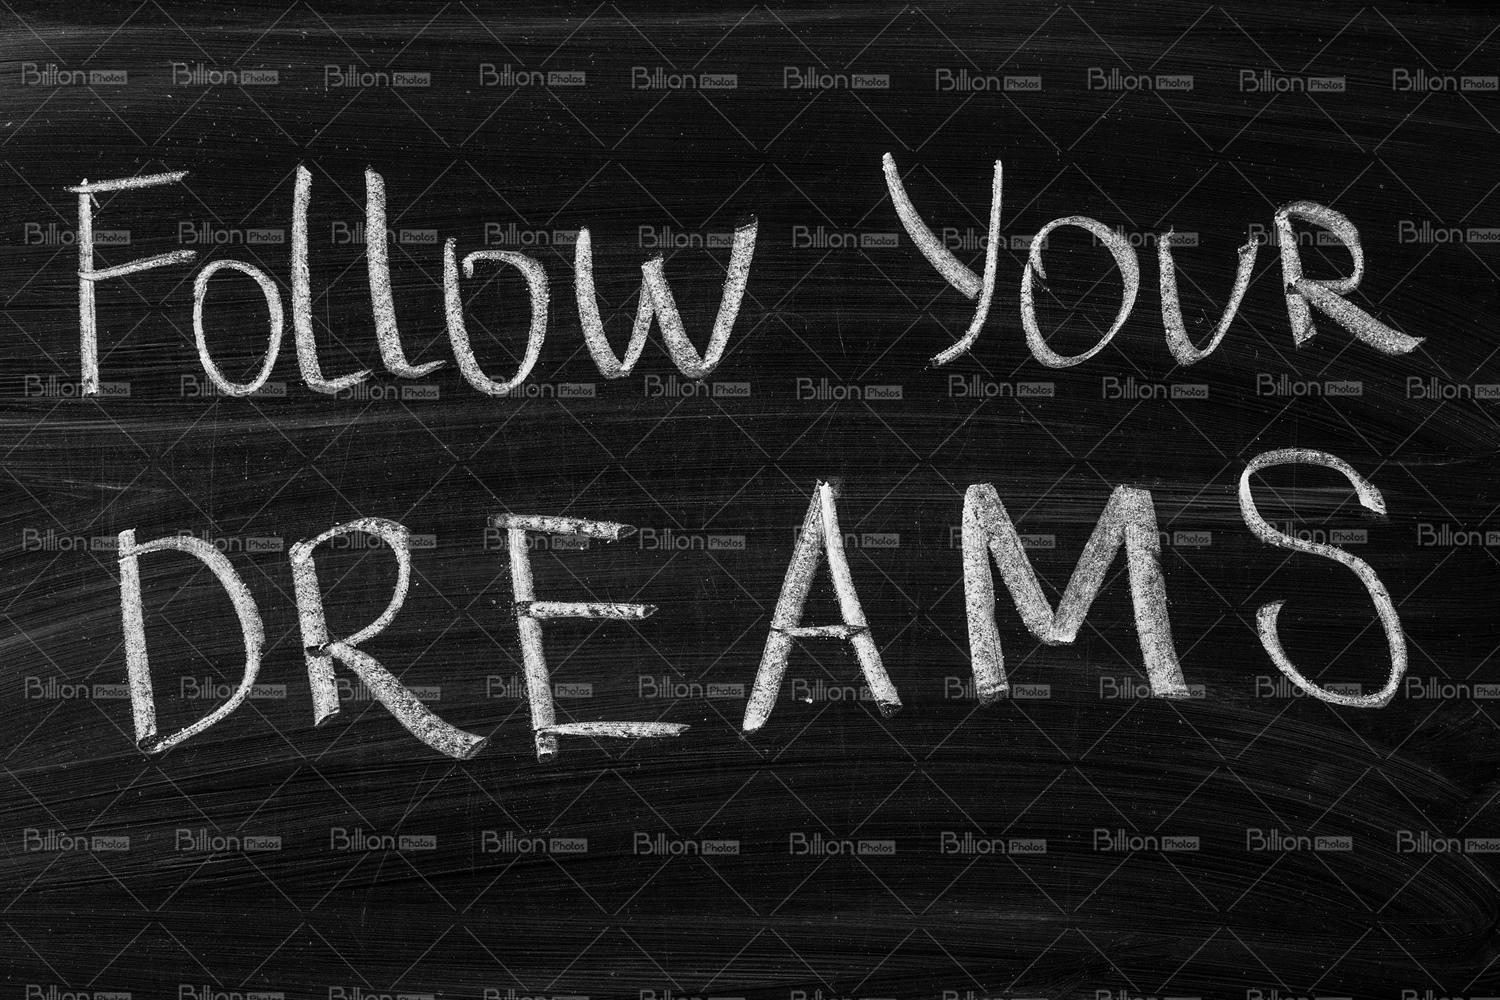 Follow YOUR
DREAMS
Billion Photos